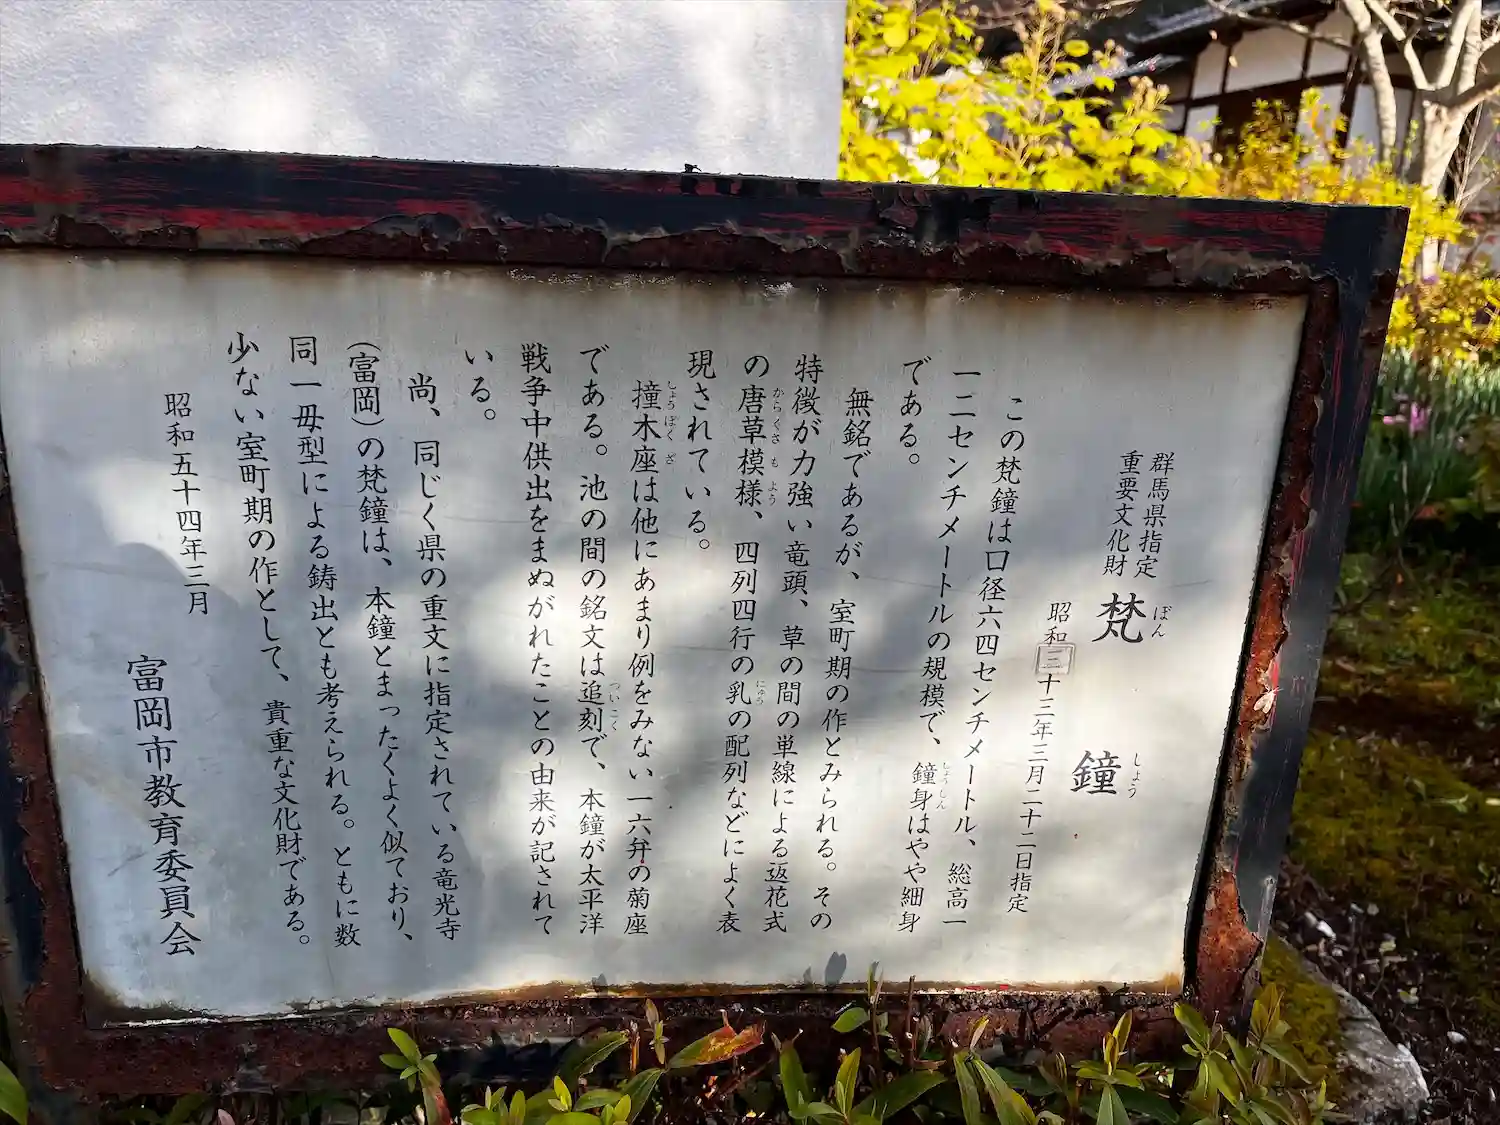 群馬県指定
重要文化財
梵鐘
ぼんしょう
昭和三十三年三月二十二日指定
この梵鐘は口径六四センチメートル、総高一
一二センチメートルの規模で、鐘身はやや細身
しょうしん
である。
無銘であるが、室町期の作とみられる。その
特徴が力強い竜頭、草の間の単線による返花式
の唐草模様、四列四行の乳の配列などによく表
からくさもよう
にゅう
現されている。
撞木座は他にあまり例をみない一六弁の菊座
しゅもくざ
である。池の間の銘文は追刻で、本鐘が太平洋
ついこく
戦争中供出をまぬがれたことの由来が記されて
いる。
尚、同じく県の重文に指定されている竜光寺
(富岡)の梵鐘は、本鐘とまったくよく似ており、
同一毋型による鋳出とも考えられる。ともに数
少ない室町期の作として、貴重な文化財である。
昭和五十四年三月
富岡市教育委員会